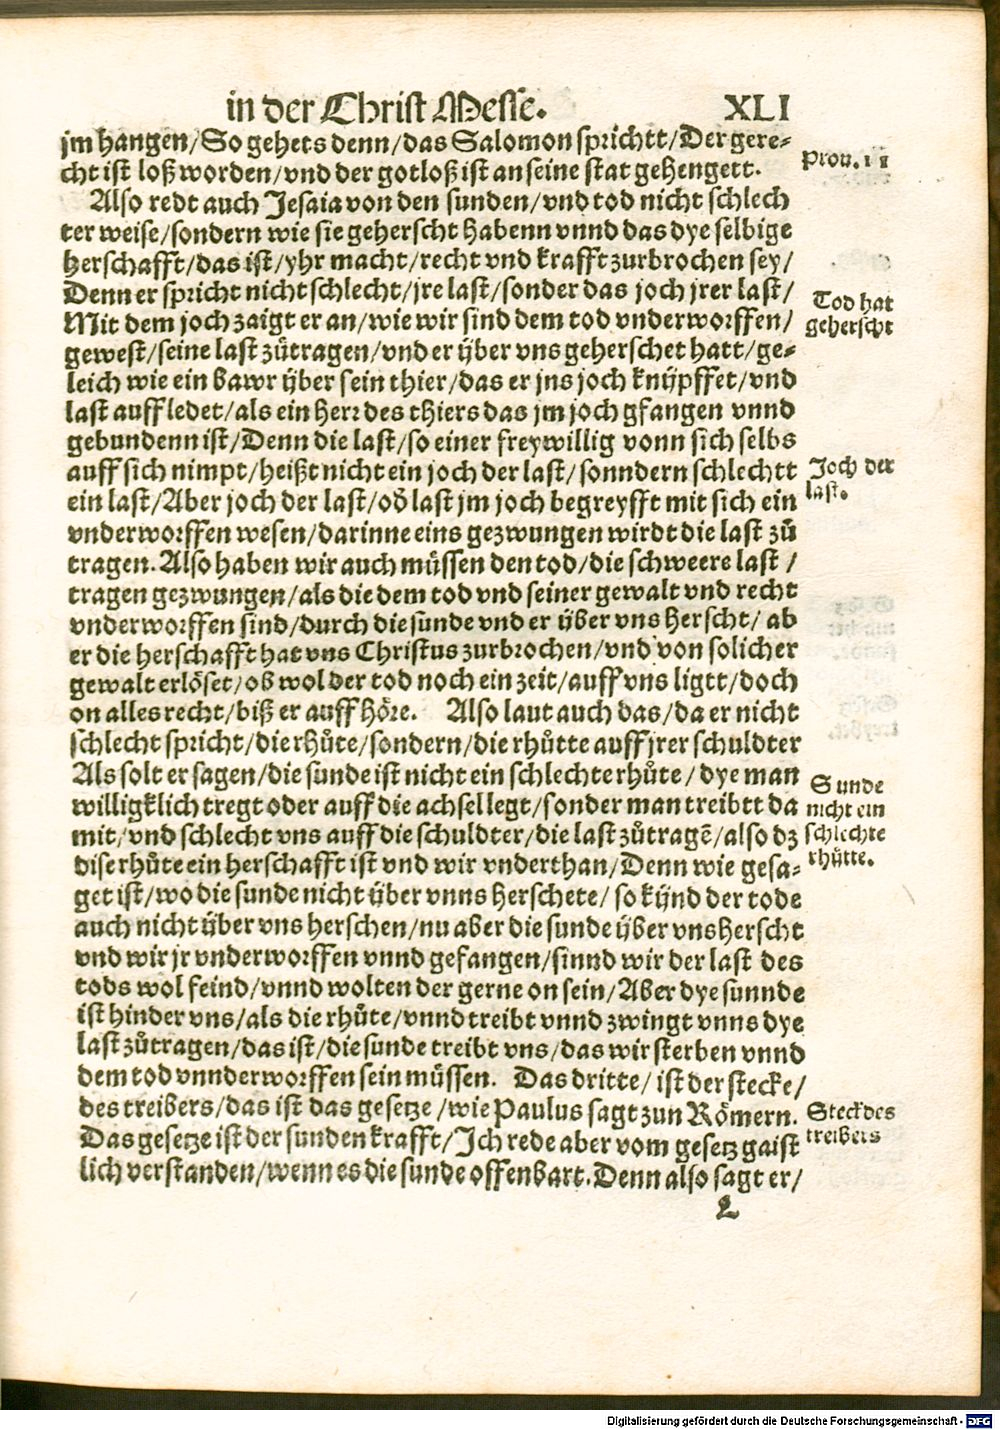 in der Christ Messe. XLI
jm hangen/So gehets denn/das Salomon sprichtt/Der gere-
cht ist loß worden/vnd der gotloß ist an seine stat gehengett.
Prou. 11
Also redt auch Jesaia von den sunden/vnd tod nicht schlech
ter weise/sondern wie sie geherscht habenn vnnd das dye selbige
herschafft/das ist/yhr macht/recht vnd krafft zurbrochen sey/
Denn er spricht nicht schlecht/jre last/sonder das joch jrer last/
Mit dem joch zaigt er an/wie wir sind dem tod vnderworffen/
Tod hat
geherscht
gewest/seine last zůtragen/vnd er ÿber vns geherschet hatt/ge-
leich wie ein bawr ÿber sein thier/das er jns joch knÿpffet/vnd
last auffledet/als ein herr des thiers das jm joch gfangen vnnd
gebundenn ist/Denn die last/so einer freywillig vonn sich selbs
auff sich nimpt/heißt nicht ein joch der last/sonndern schlechtt
Joch der
last.
ein last/Aber joch der last/oď last jm joch begreyfft mit sich ein
vnderworffen wesen/darinne eins gezwungen wirdt die last zů
tragen. Also haben wir auch müssen den tod/die schweere last /
tragen gezwungen/als die dem tod vnd seiner gewalt vnd recht
vnderworffen sind/durch die sunde vnd er ÿber vns herscht/ ab
er die herschafft hat vns Christus zurbrochen/vnd von solicher
gewalt erlöset/ob wol der tod noch ein zeit/auff vns ligtt/doch
on alles recht/biß er auff höre. Also laut auch das/da er nicht
schlecht spricht/die rhůte/sondern/die rhůtte auff jrer schuldter
Als solt er sagen/die sunde ist nicht ein schlechte rhůte/ dye man
willigklich tregt oder auff die achsel legt/sonder man treibtt da
mit/vnd schlecht vns auff die schuldter/die last zůtragē/also dz
dise rhůte ein herschafft ist vnd wir vnderthan/Denn wie gesa-
Sunde
nicht ein
schlechte
rhůtte.
get ist/wo die sunde nicht ÿber vnns herschete/ so kÿnd der tode
auch nicht ÿber vns herschen/nu aber die sunde ÿber vns herscht
vnd wir jr vnderworffen vnnd gefangen/sinnd wir der last des
tods wol feind/vnnd wolten der gerne on sein/Aber dye sunnde
ist hinder vns/als die rhůte/vnnd treibt vnnd zwingt vnns dye
last zůtragen/das ist/die sunde treibt vns/das wir sterben vnnd
dem tod vnnderworffen sein müssen. Das dritte/ ist der stecke/
des treibers/das ist das gesetze/wie Paulus sagt zun Römern.
Steck des
treibers
Das gesetze ist der sunden krafft/Ich rede aber vom gesetz gaist
lich verstanden/wenn es die sunde offenbart. Denn also sagt er/
L
Digitalisierung gefördert durch die Deutsche Forschungsgemeinschaft - DFG